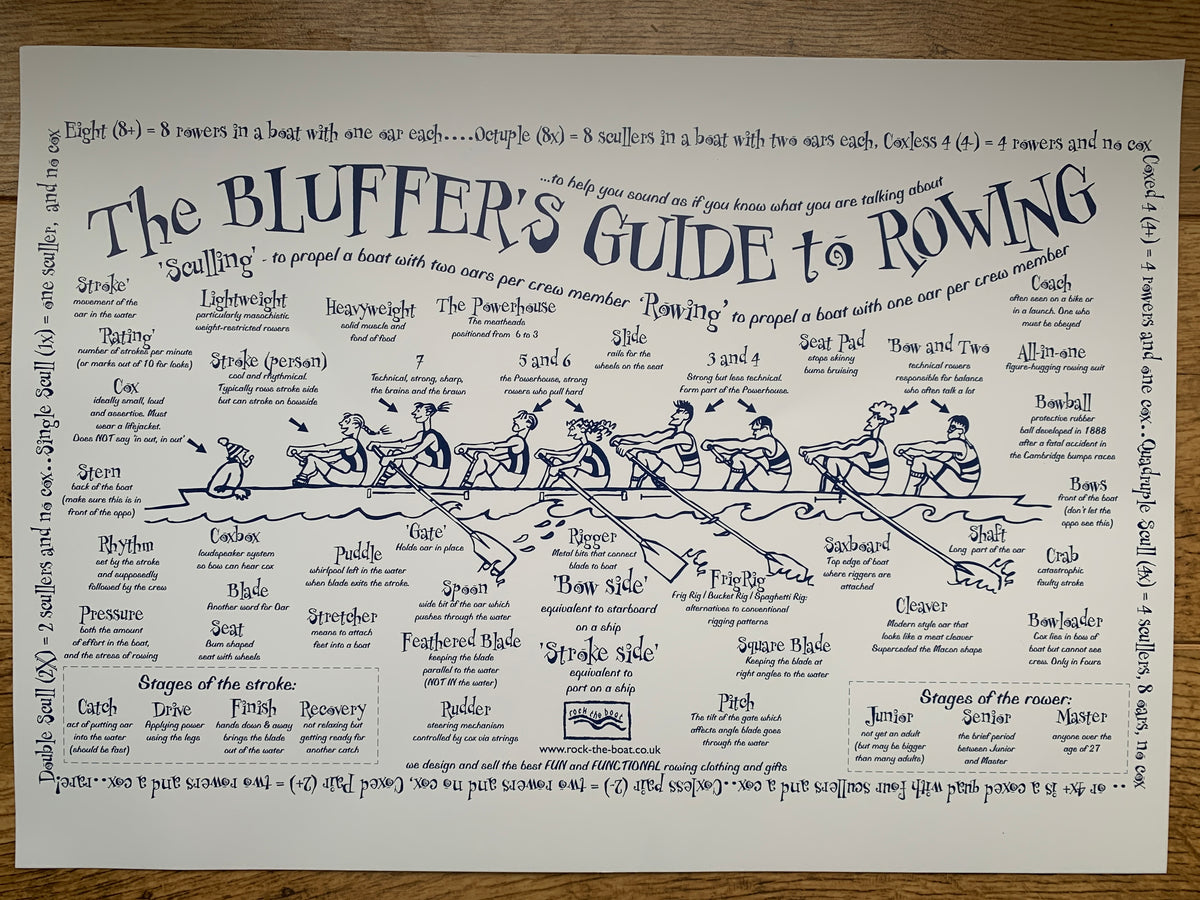 Eight (8+) = 8 rowers in a boat with one oar each....Octuple (8x) = 8 scullers in a boat with two oars each, Coxless 4 (4-) = 4 rowers and no cox
Coxed 4 (4+) = 4 rowers and one cox...Quadruple Scull (4x) = 4 scullers, 8 oars, no cox
.. or 4x+ is a coxed quad with four scullers and a cox...Coxless pair (2-) = two rowers and no cox, Coxed Pair (2+) = two rowers and a cox...rare!
Double Scull (2X) = 2 scullers and no cox...Single Scull (1x) = one sculler, and no cox
...to help you sound as if you know what you are talking about
The BLUFFER'S GUIDE to ROWING
'Sculling' - to propel a boat with two oars per crew member
'Rowing' to propel a boat with one oar per crew member
Stroke'
movement of the
oar in the water
'Rating'
number of strokes per minute
(or marks out of 10 for looks)
Cox
ideally small, loud
and assertive. Must
wear a lifejacket.
Does NOT say 'in out, in out'
Stern
back of the boat
(make sure this is in
front of the oppo)
Lightweight
particularly masochistic
weight-restricted rowers
Stroke (person)
cool and rhythmical.
Typically rows stroke side
but can stroke on bowside
Heavyweight
solid muscle and
fond of food
7
Technical, strong, sharp,
the brains and the brawn
The Powerhouse
The meatheads
positioned from 6 to 3
5 and 6
the Powerhouse, strong
rowers who pull hard
Slide
rails for the
wheels on the seat
3 and 4
Strong but less technical.
Form part of the Powerhouse.
Seat Pad
stops skinny
bums bruising
'Bow and Two
technical rowers
responsible for balance
who often talk a lot
Coach
often seen on a bike or
in a launch. One who
must be obeyed
All-in-one
figure-hugging rowing suit
Bowball
protective rubber
ball developed in 1888
after a fatal accident in
the Cambridge bumps races
Bows
front of the boat
(don't let the
oppo see this)
Rhythm
set by the stroke
and supposedly
followed by the crew
Pressure
both the amount
of effort in the boat,
and the stress of rowing
Coxbox
loudspeaker system
so bow can hear cox
Blade
Another word for Oar
Seat
Bum shaped
seat with wheels
Puddle
whirlpool left in the water
when blade exits the stroke.
Stretcher
means to attach
feet into a boat
'Gate'
Holds oar in place
Spoon
wide bit of the oar which
pushes through the water
Feathered Blade
keeping the blade
parallel to the water
(NOT IN the water)
Rudder
steering mechanism
controlled by cox via strings
Rigger
Metal bits that connect
blade to boat
'Bow side'
equivalent to starboard
on a ship
'Stroke side'
equivalent to
port on a ship
FrigRig
Frig Rig / Bucket Rig / Spaghetti Rig:
alternatives to conventional
rigging patterns
Square Blade
Keeping the blade at
right angles to the water
Pitch
The tilt of the gate which
affects angle blade goes
through the water
Saxboard
Top edge of boat
where riggers are
attached
Cleaver
Modern style oar that
looks like a meat cleaver
Superceded the Macon shape
Shaft
Long part of the oar
Crab
catastrophic
faulty stroke
Bowloader
Cox lies in bow of
boat but cannot see
crew. Only in Fours
Stages of the stroke:
Catch
act of putting oar
into the water
(should be fast)
Drive
Applying power
using the legs
Finish
hands down & away
brings the blade
out of the water
Recovery
not relaxing but
getting ready for
another catch
Stages of the rower:
Junior
not yet an adult
(but may be bigger
than many adults)
Senior
the brief period
between Junior
and Master
Master
anyone over the
age of 27
rock the boat
www.rock-the-boat.co.uk
we design and sell the best FUN and FUNCTIONAL rowing clothing and gifts